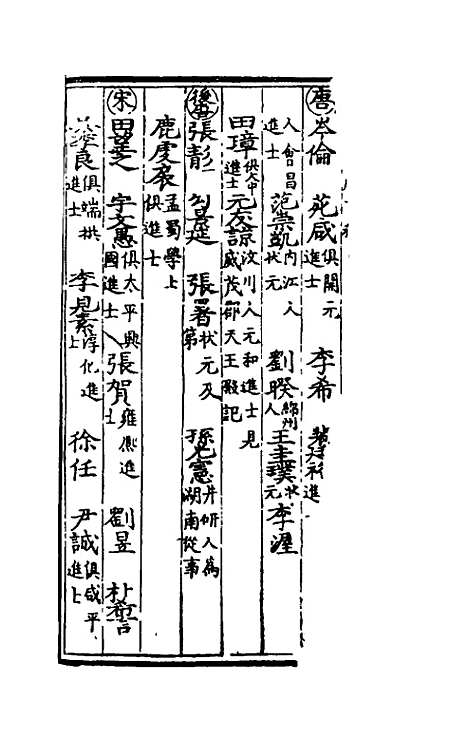 唐 岑倫 苑咸俱開元進士 李希 進
人會昌進士 范崇凱內江人狀元 劉暌綿州人 王圭璞狀元 李渥
田璋俱大中進士 元友諒汶川人元和進士見威茂郡天王殿記
後蜀 張彭 勾 張署狀元及第 孫光憲井研人為湖南從事
鹿虔扆孟蜀學士俱進士
宋 田 宇文愚俱太平興國進士 張賀雍熙進士 劉昱
良俱端拱進士 李見素淳化進士 徐任 尹誠俱咸平進士